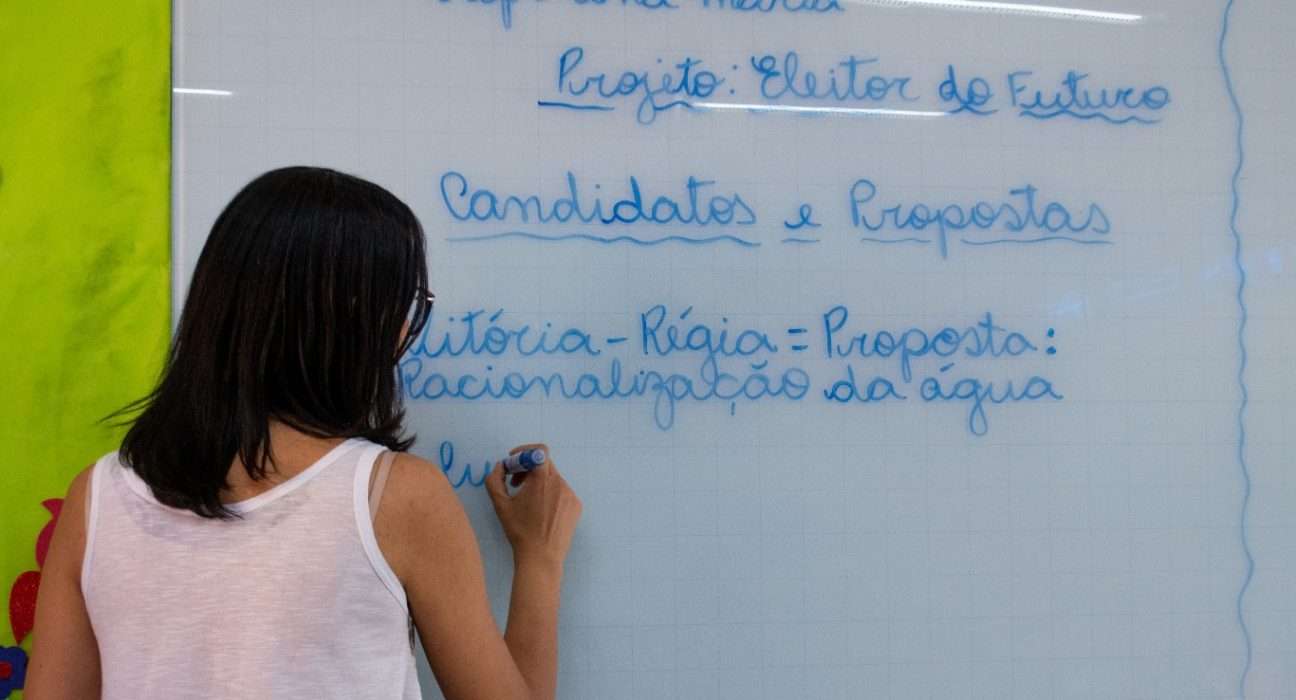 Maria
Projeto: Eleitor do Futuro
Candidatos e Propostas
Vitória-Régia = Proposta:
Racionalização da água